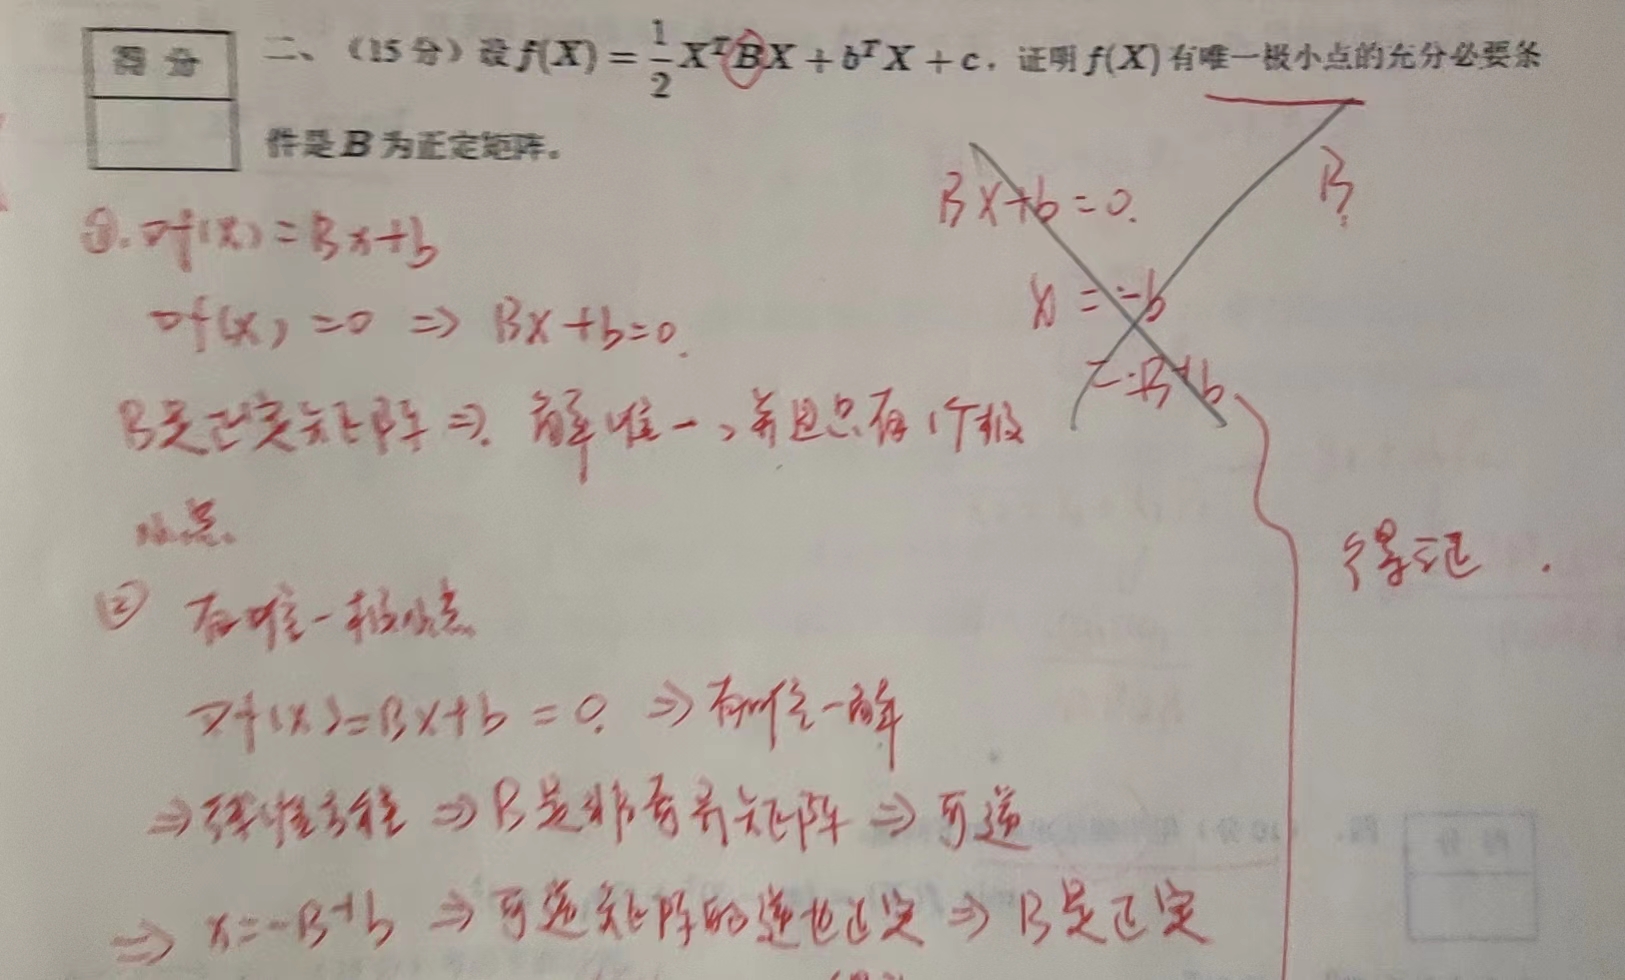 得分
二、(15分)设 f(X) = 1/2 XᵀBX + bᵀX + c,证明 f(X) 有唯一极小点的充分必要条
件是 B 为正定矩阵。
Bx+b=0.
B
①. ∇f(x)=Bx+b
x = -b
∇f(x)=0 ⇒ Bx+b=0.
=-B⁻¹b
B是正定矩阵 ⇒. 解唯一,并且只有1个极
小点.
得证.
② 有唯一极小点
∇f(x)=Bx+b=0. ⇒ 有唯一解
⇒ 线性方程 ⇒ B是非奇异矩阵 ⇒ 可逆
⇒ x=-B⁻¹b ⇒ 可逆矩阵的逆也正定 ⇒ B是正定